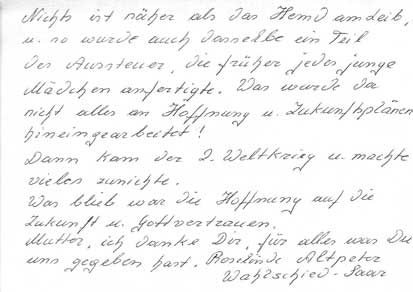 Nichts ist näher als das Hemd am Leib,
u. so wurde auch dasselbe ein Teil
der Aussteuer, die früher jedes junge
Mädchen anfertigte. Was wurde da
nicht alles an Hoffnung u. Zukunftsplänen
hineingearbeitet!
Dann kam der 2. Weltkrieg u. machte
vieles zunichte.
Was blieb war die Hoffnung auf die
Zukunft u. Gottvertrauen.
Mutter, ich danke Dir, für alles was Du
uns gegeben hast. Roselinde Altpeter
Wahlschied-Saar